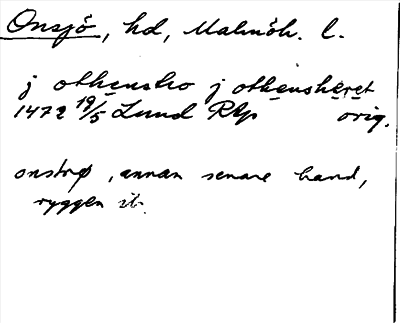 Onsjö, hd, Malmöh. l.
j othensho j othensheret
1472 19/5 Lund Rtp orig.
onstrø, annan senare hand,
ryggen ib.